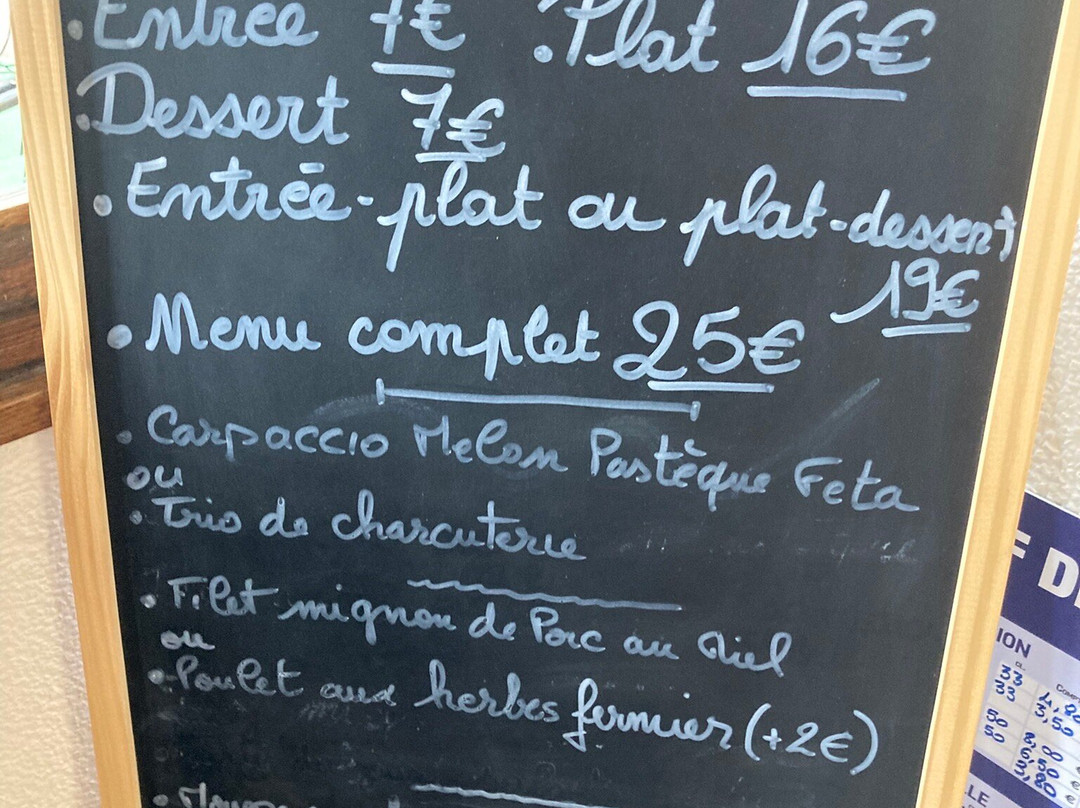 • Entrée 7€ • Plat 16€
• Dessert 7€
• Entrée-plat ou plat-dessert
19€
• Menu complet 25€
• Carpaccio Melon Pastèque Feta
ou
• Trio de charcuterie
• Filet mignon de Porc au Miel
ou
• Poulet aux herbes fermier (+2€)
F D
ION
LE